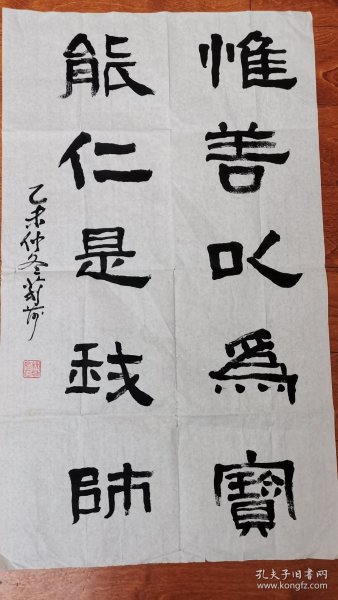 惟善以爲寶
能仁是我師
乙未仲冬
孔夫子旧书网
www.kongfz.com